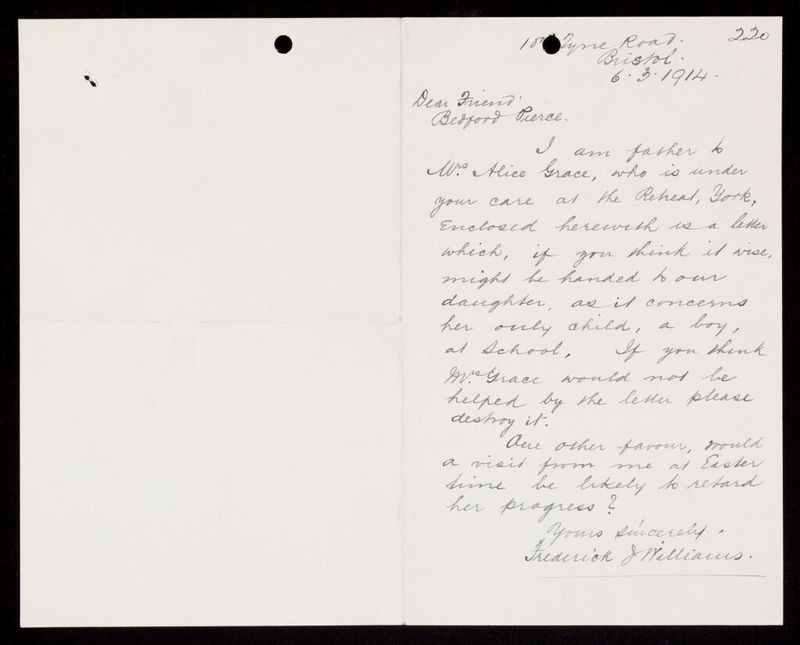 220
Tyne Road.
Bristol.
6.3.1914.
Dear Friend.
Bedford Pierce.
I am father to
Mrs. Alice Grace, who is under
your care at the Retreat, York,
Enclosed herewith is a letter
which, if you think it wise,
might be handed to our
daughter, as it concerns
her only child, a boy,
at School. If you think
Mrs. Grace would not be
helped by the letter please
destroy it.
One other favour, would
a visit from me at Easter
time be likely to retard
her progress?
Yours sincerely.
Frederick J Williams.